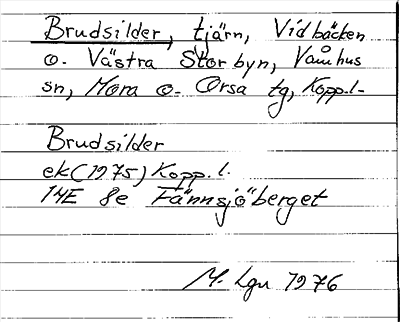 Brudsilder, tjärn, Vid bäcken
o. Västra Storbyn, Våmhus
sn, Mora o. Orsa tg, Kopp.l.
Brudsilder
ek (1975) Kopp.l.
14E 8e Fännsjöberget
M. Lgn 1976